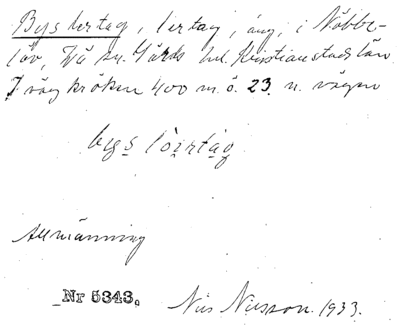 Bys lertag, lertag, äng, i Nöbbe-
löv, Vä sn. Gärds hd. Kristianstads län
I väg kröken 400 m. ö. 23 n. vägen
bys löirtág
Allmänning
Nr 5343. Nils Nilsson. 1933.